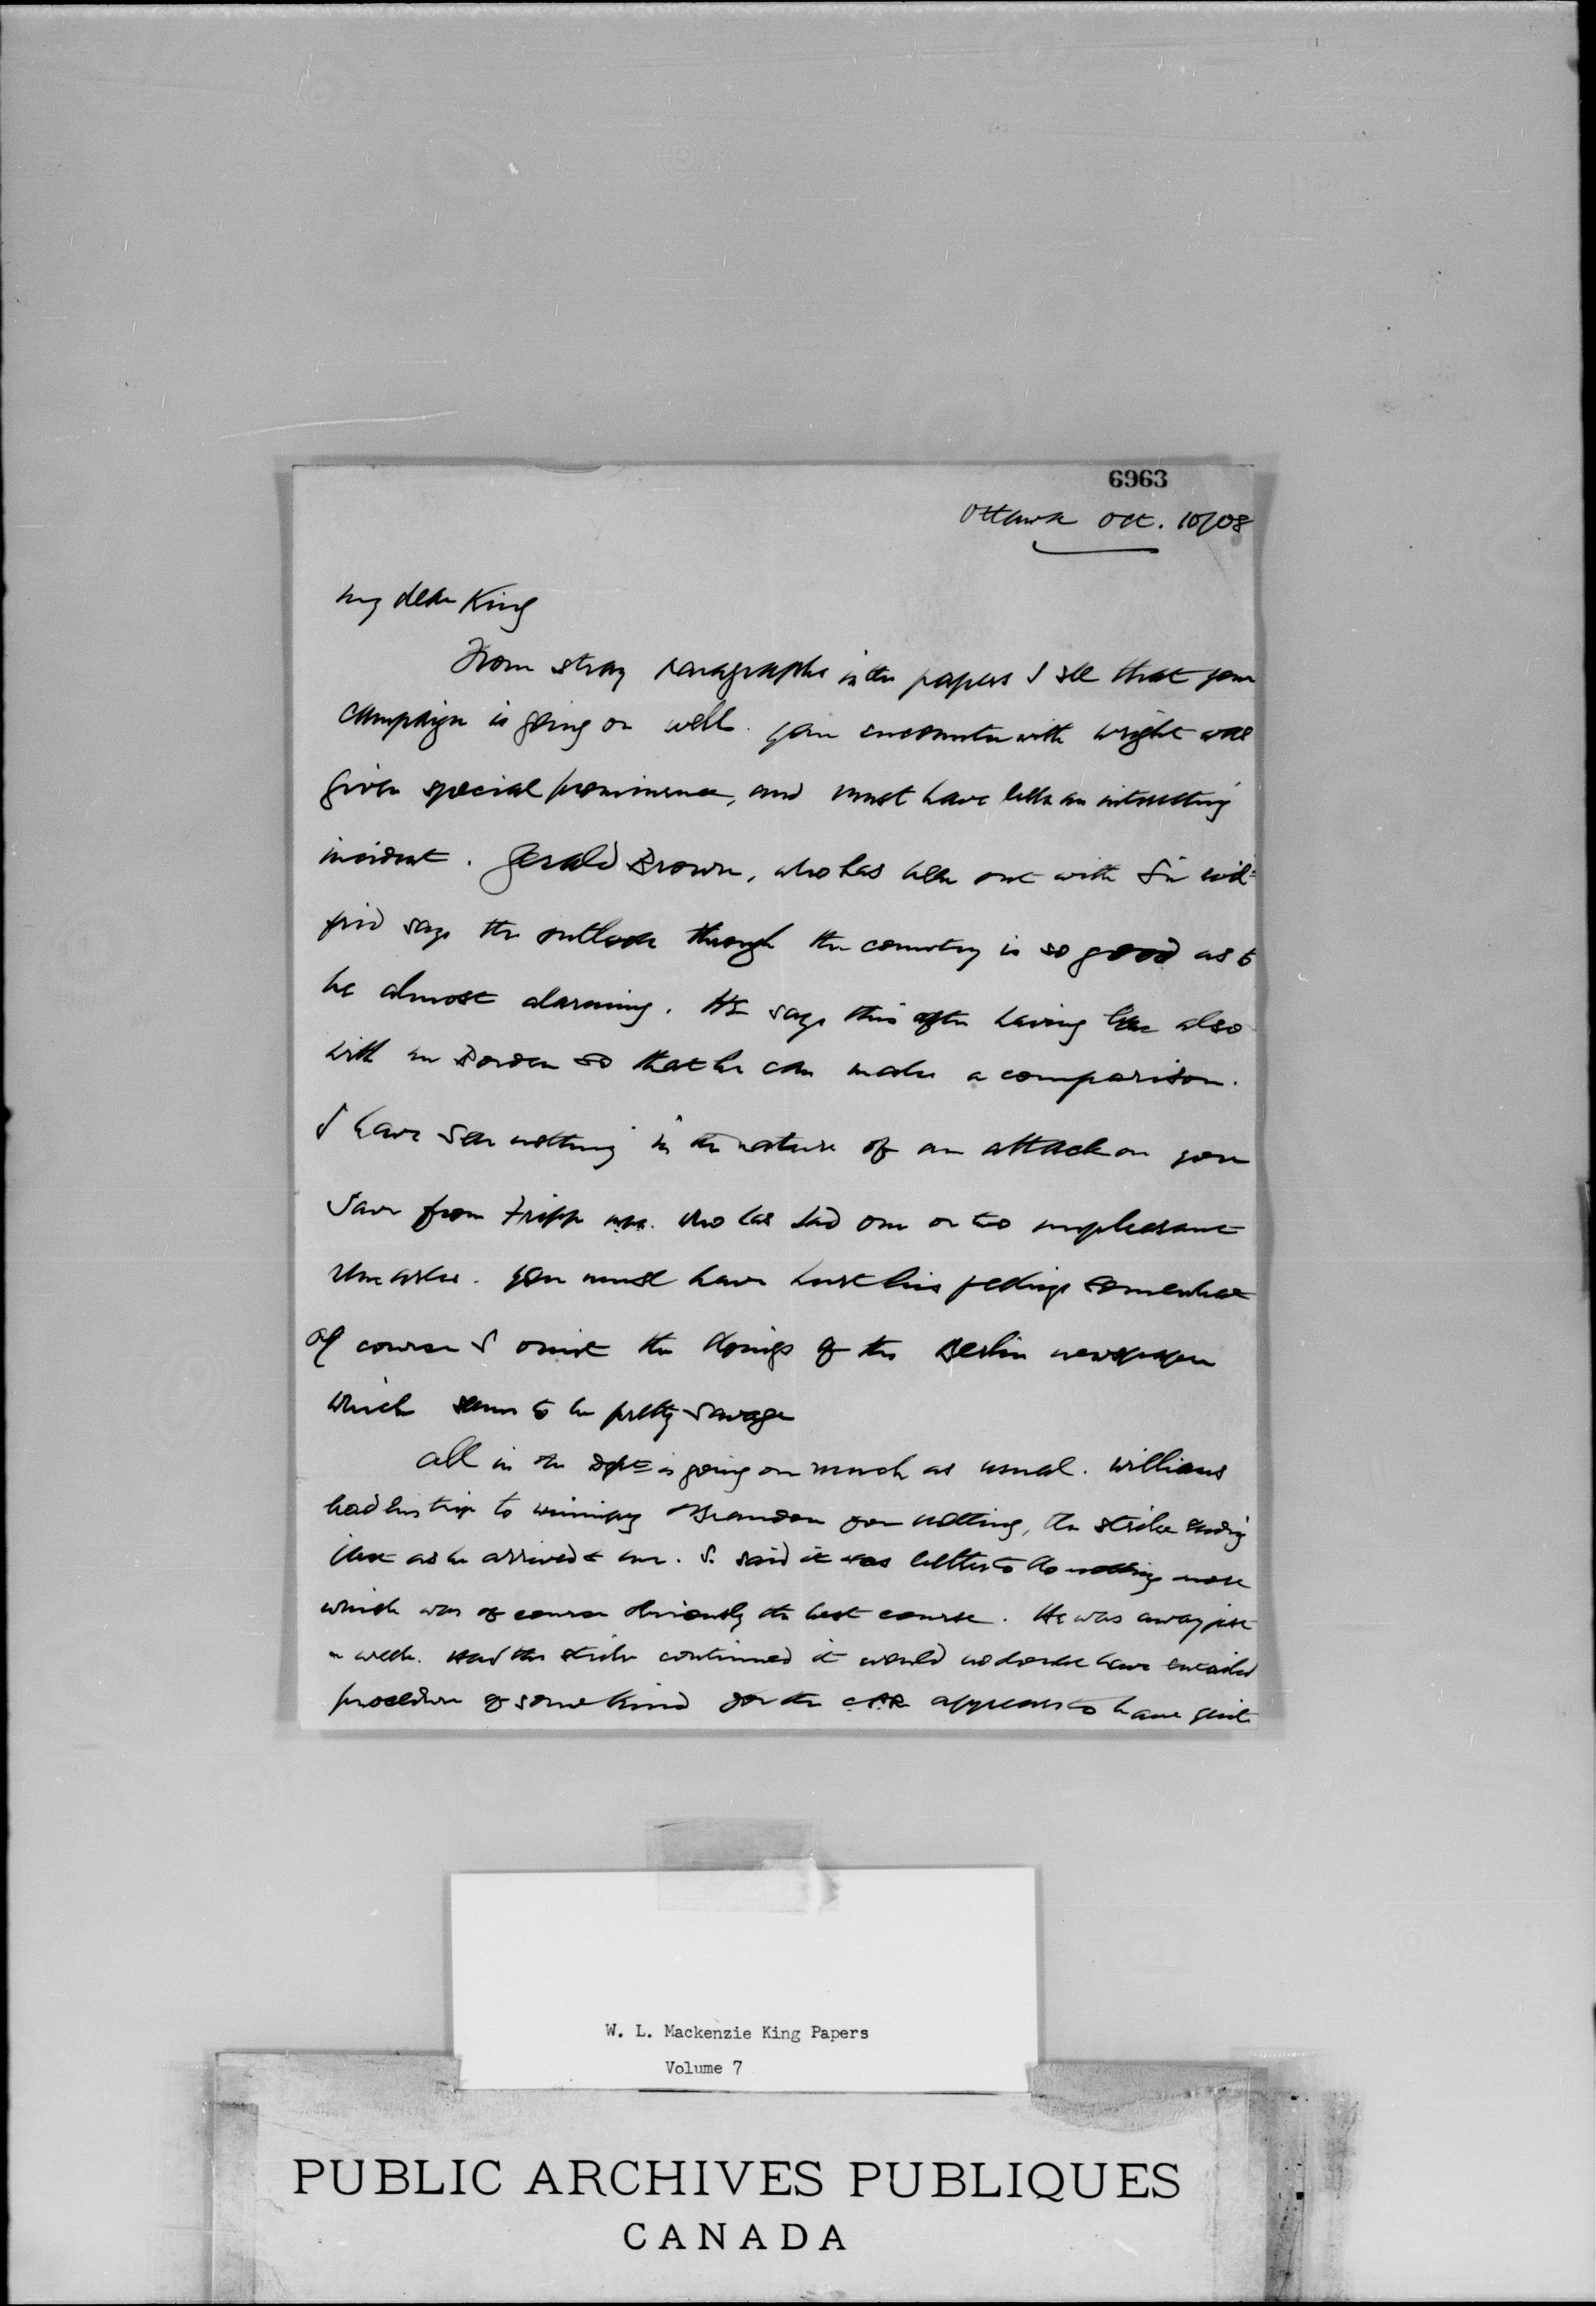 6963
Ottawa Oct. 10/08
My dear King
From stray paragraphs in the papers I see that your
campaign is going on well. Your encounter with Wright was
given special prominence, and must have been an interesting
incident. Gerald Brown, who has been out with Sir Wil=
frid says the outlook through the country is so good as to
be almost alarming. He says this after having been also
with Mr Borden so that he can make a comparison.
I have seen nothing in the nature of an attack on you
save from Fripp who has had one or two unpleasant
remarks. You must have hurt his feelings somewhat
Of course I omit the doings of the Berlin newspaper
which seems to be pretty savage
All in the Dept is going on much as usual. Williams
had his trip to Winnipeg Brandon for nothing, the strike ending
just as he arrived &. S. said it was better to do nothing more
which was of course obviously the best course. He was away just
a week. Had the strike continued it would no doubt have entailed
procedure of some kind for the CPR appears to have quite
W. L. Mackenzie King Papers
Volume 7
PUBLIC ARCHIVES PUBLIQUES
CANADA